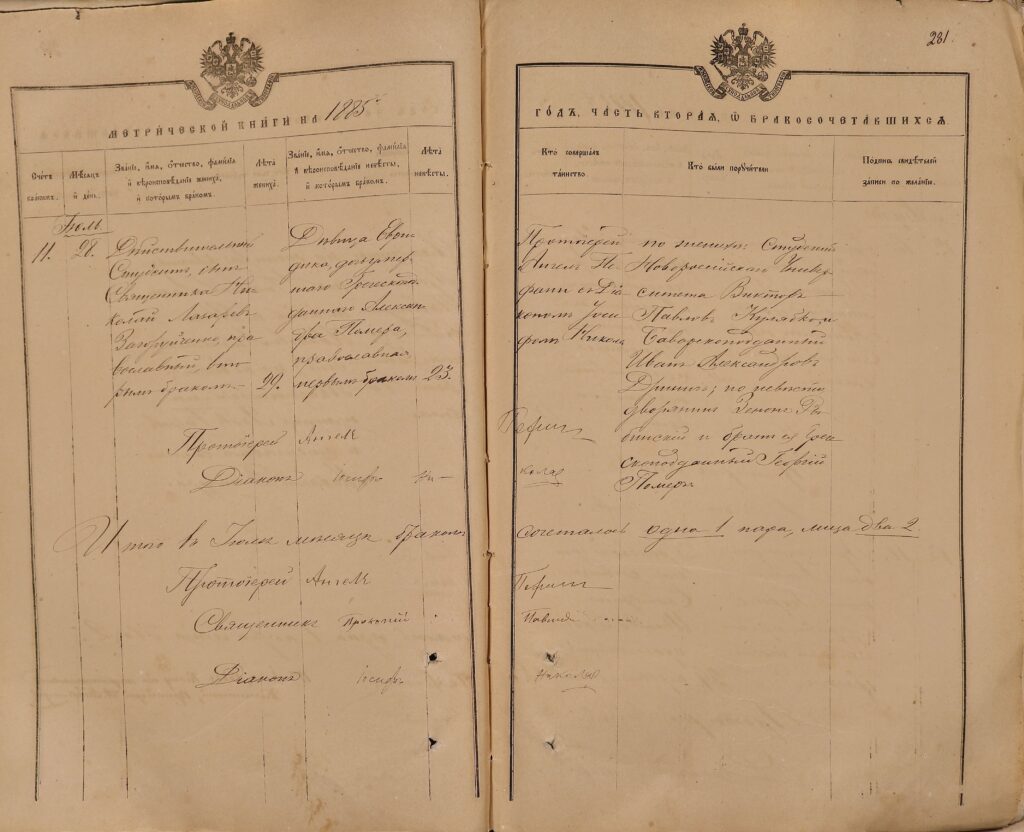 281.
МЕТРИЧЕСКОЙ КНИГИ НА 1885й
ГОДЪ, ЧАСТЬ ВТОРАЯ, Ѡ БРАКОСОЧЕТАВШИХСЯ.
Счетъ браковъ.
Мѣсяцъ и день.
Званіе, имя, отчество, фамилія
и вѣроисповѣданіе жениха,
и которымъ бракомъ.
Лѣта
жениха.
Званіе, имя, отчество, фамилія
и вѣроисповѣданіе невѣсты,
и которымъ бракомъ.
Лѣта
невѣсты.
Кто совершалъ
таинство.
Кто были поручители.
Подпись свидѣтелей
записи по желанію.
Іюль.
11.
28.
Дѣйствительный
Студентъ, сынъ
Священника Ни-
колай Лазаревъ
пра-
вославный, вто-
рымъ бракомъ.
29.
Дѣвица Евои-
дика, дочь умер-
шаго Греческопо-
даннаго Алексан-
дра Помера,
православная
первымъ бракомъ
23.
Протоіерей
Ангелъ Пе-
съ Діа-
кономъ Іоси-
фомъ Никола
по женихѣ: Студентъ
Новороссійскаго Универ-
ситета Викторъ
Павловъ и
Баварскоподданный
Иванъ Александровъ
по невѣстѣ
дворянинъ Зенонъ Ря-
бинскій и братъ ея Гре-
ческоподданный Георгій
Померъ
Протоіерей Ангелъ
Діаконъ Іосифъ Ни-
колад
Итого въ Іюлѣ мѣсяцѣ бракомъ
сочеталось одна 1 пара, лица два 2.
Протоіерей Ангелъ
Священникъ Прокопій
Діаконъ Іосифъ